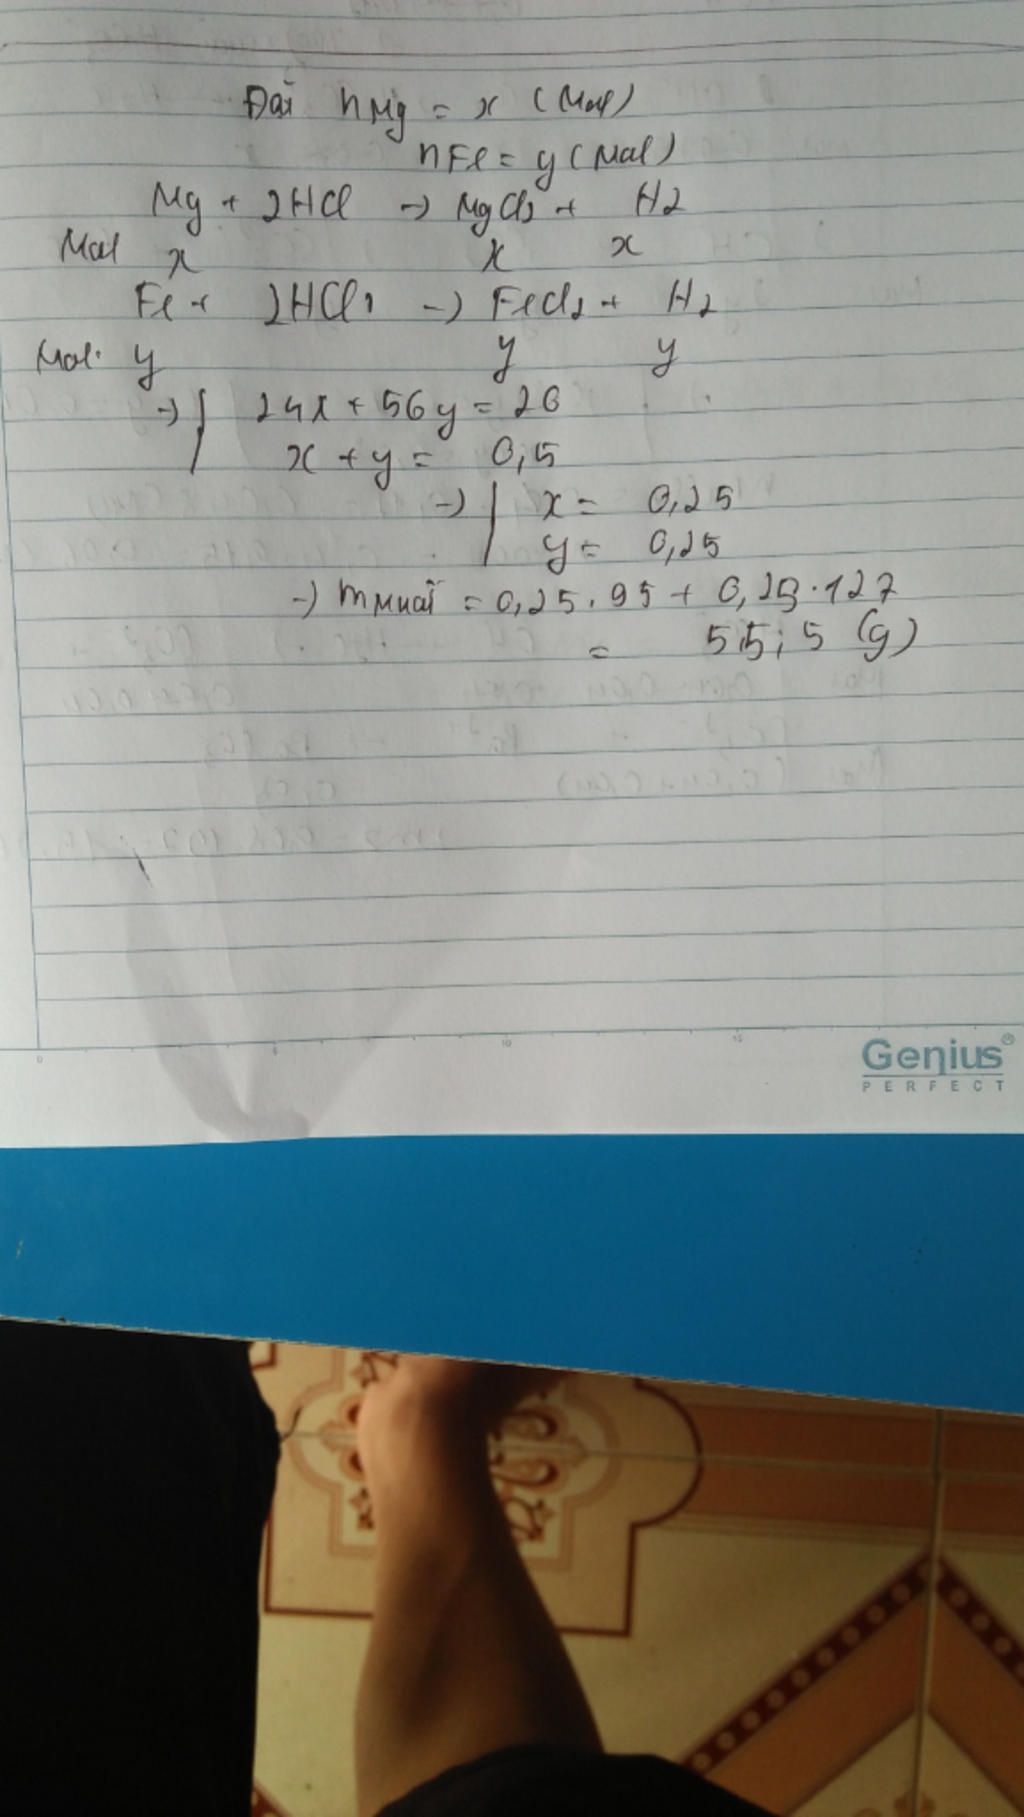 Đặt nMg = x (Mol)
nFe = y (Mol)
Mg + 2HCl → MgCl2 + H2
Mol x x x
Fe + 2HCl → FeCl2 + H2
Mol. y y y
→ | 24x + 56y = 20
x + y = 0,5
→ | x = 0,25
y = 0,25
→ mmuối = 0,25.95 + 0,25.127
= 55,5 (g)
0 5 10 15
Genius®
PERFECT